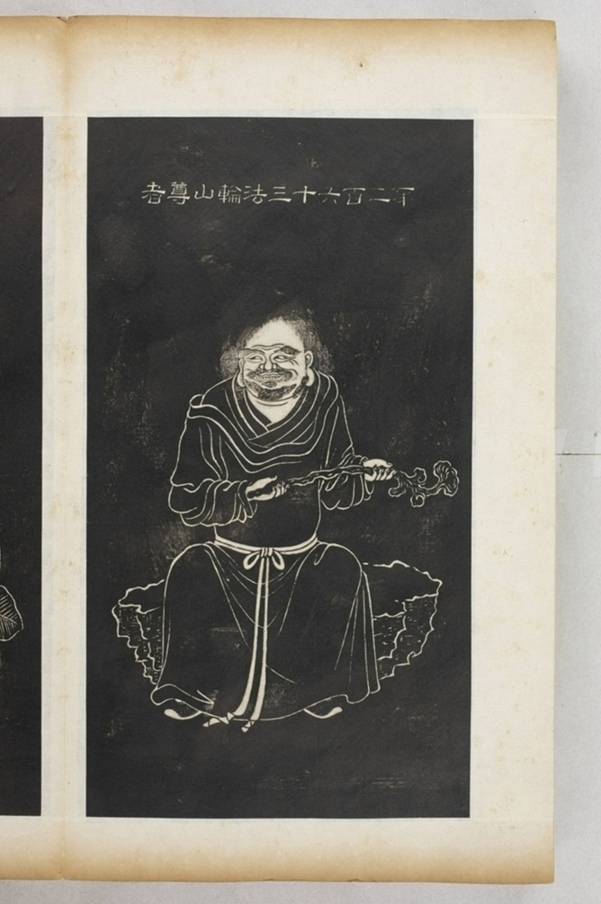 二百六十三法輪山尊者